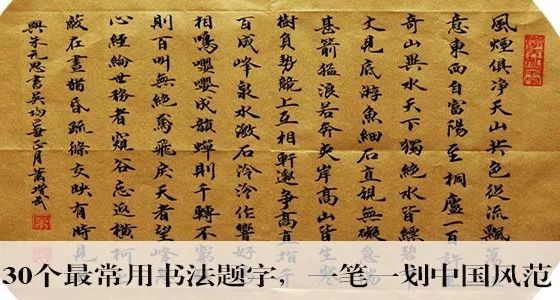 風煙俱净天山共色從流飄
意東西自富陽至桐廬一百許
奇山異水天下獨絕水皆縹碧
丈見底游魚細石直視無礙
甚箭猛浪若奔夹岸高山皆
樹負勢競上互相軒邈爭高直
百成峰泉水激石泠泠作響好
相鳴嚶嚶成韻蟬則千轉不窮
則百叫無絕鳶飛戾天者望峰
心經綸世務者窺谷忘返橫柯
蔽在晝猶昏疏條交映有時見
與朱元思書吳均
30个最常用书法题字，一笔一划中国风范